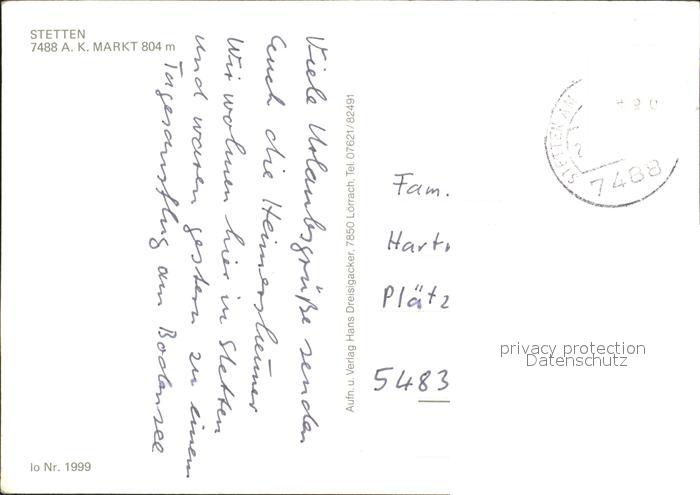 STETTEN
7488 A. K. MARKT 804 m
Viele Urlaubsgrüße senden
Euch die Heimersheimer
Wir wohnen hier in Stetten
und waren gestern zu einem
Tagesausflug am Bodensee
Aufn. u. Verlag Hans Dreisigacker, 7850 Lörrach, Tel. 07621/82491
STETTEN AM
7488
Fam.
Hart
Plätz
5483
privacy protection
Datenschutz
Io Nr. 1999